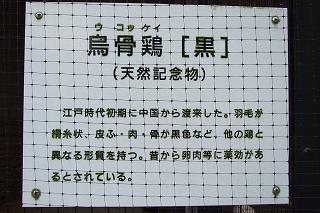 ウ コッ ケイ
烏骨鶏［黒］
（天然記念物）
江戸時代初期に中国から渡来した。羽毛が
絹糸状、皮ふ・肉・骨が黒色など、他の鶏と
異なる形質を持つ。昔から卵肉等に薬効があ
るとされている。